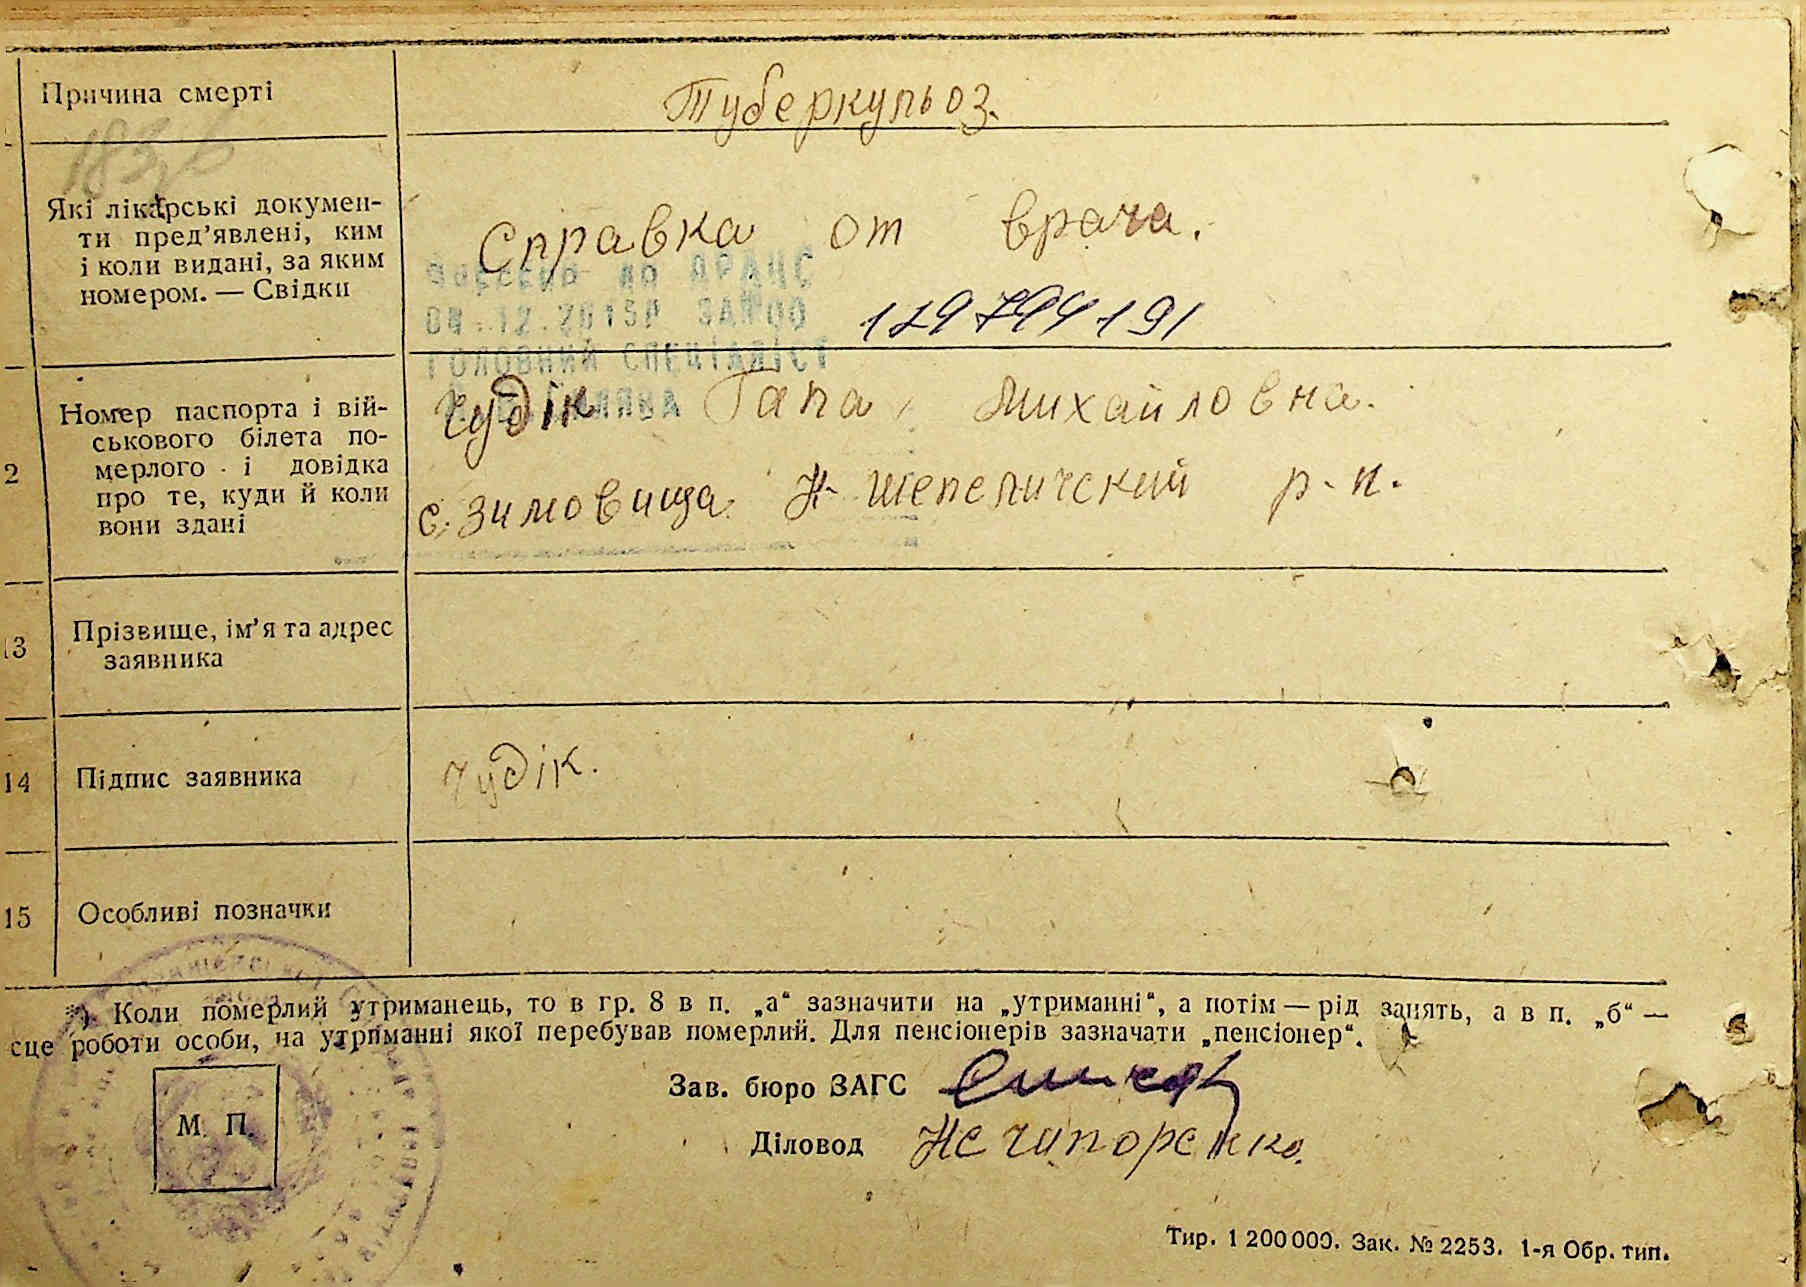 Причина смерті
Туберкульоз.
183, б
Які лікарські докумен-
ти пред’явлені, ким
і коли видані, за яким
номером. — Свідки
Справка от врача.
до ДРАЦС
04.12.2015р ЗАР00
129794191
ГОЛОВНИЙ СПЕЦІАЛІСТ
2
Номер паспорта і вій-
ськового білета по-
мерлого і довідка
про те, куди й коли
вони здані
Чудік Гапа Михайловна.
с. Зимовища. Н-Шепеличский р-н.
13
Прізвище, ім’я та адрес
заявника
14
Підпис заявника
Чудік.
15
Особливі позначки
*) Коли померлий утриманець, то в гр. 8 в п. „а“ зазначити на „утриманні“, а потім — рід занять, а в п. „б“ —
сце роботи особи, на утриманні якої перебував померлий. Для пенсіонерів зазначати „пенсіонер“.
М. П.
Зав. бюро ЗАГС
Діловод Нечипоренко.
Тир. 1 200 000. Зак. № 2253. 1-я Обр. тип.